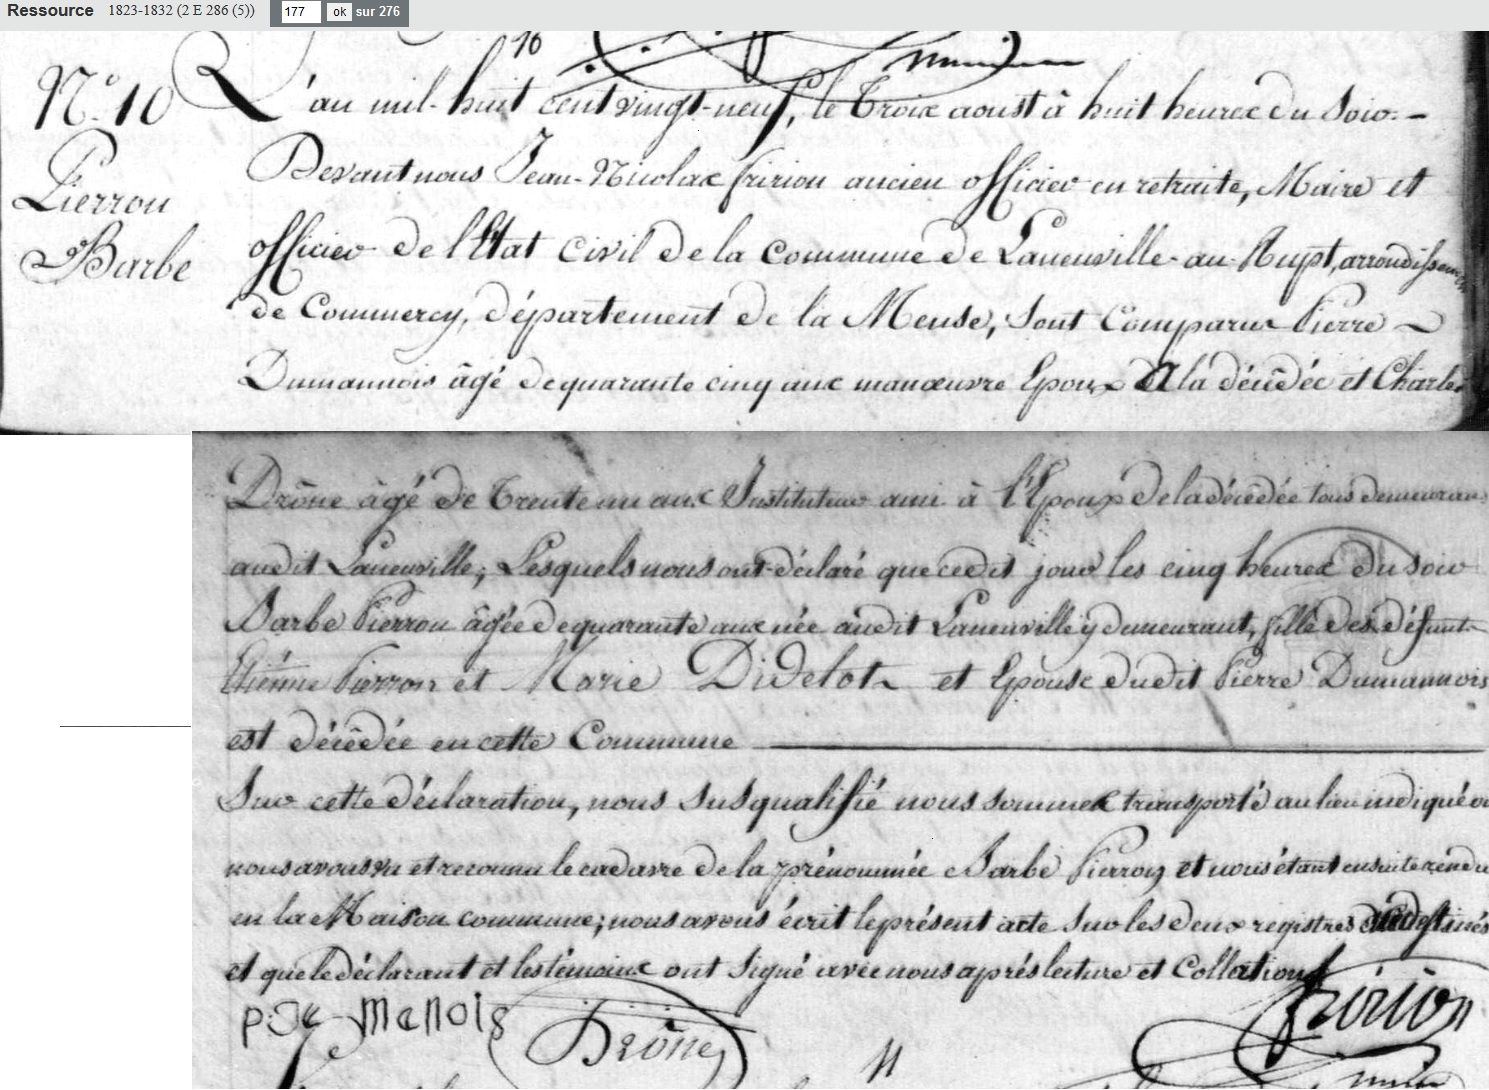 Ressource 1823-1832 (2 E 286 (5)) 177 ok sur 276
N.° 10
Pierron
Barbe
L'an mil-huit cent vingt-neuf, le Troix aoust à huit heurex du soir. -
Devant nous Jean-Nicolas fririon ancien officier en retraite, Maire et
officier de l'Etat civil de la Commune de Laneuville-au-Rupt, arrondissement
de Commercy, département de la Meuse, sont Comparus Pierre
Dumannois âgé de quarante cinq anx manœuvre Epoux de la décédée et Charles
Drône âgé de Trente un anx Instituteur ami à l'Epoux de la décédée tous demeurans
audit Laneuville; Lesquels nous ont déclaré que cedit jour les cinq heurex du soir
Barbe Pierron âgée de quarante anx née audit Laneuville y demeurant, fille des défunts
Etienne Pierron et Marie Didelot et Epouse dudit Pierre Dumannois
est décédée en cette Commune
Sur cette déclaration, nous susqualifié nous sommex transporté au lieu indiqué où
nous avons vu et reconnu le cadavre de la prénommée Barbe Pierron et nous étant ensuite rendu
en la Maison commune; nous avons écrit le présent acte sur les deux registres
et que le déclarant et les témoins ont signé avec nous après lecture et Collation
Drône
fririon